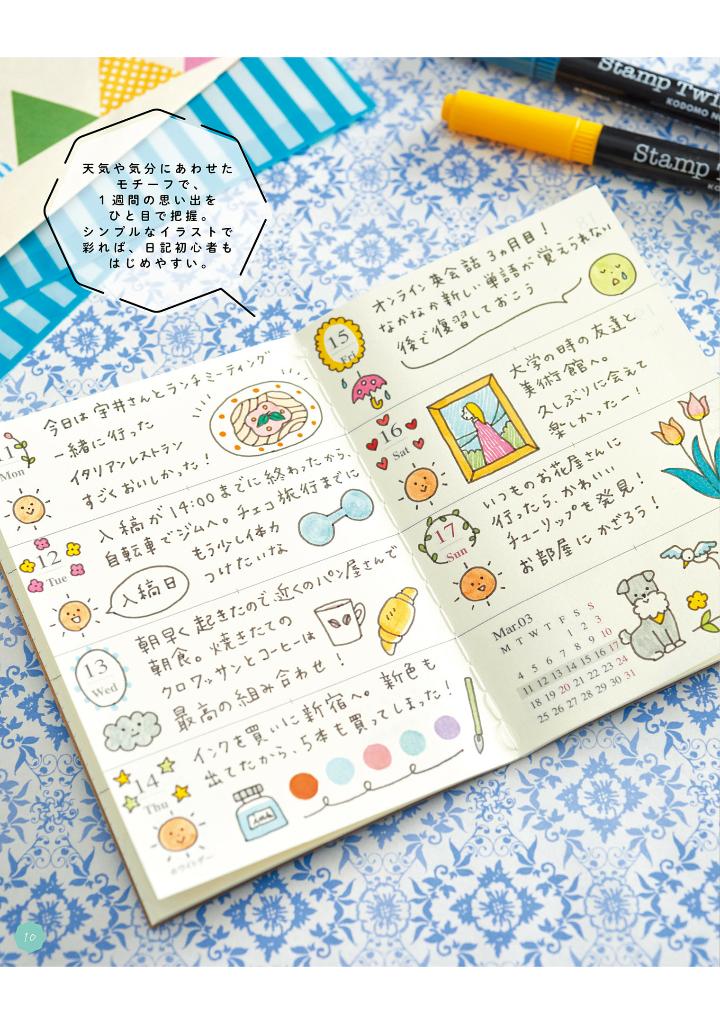 天気や気分にあわせた
モチーフで、
1週間の思い出を
ひと目で把握。
シンプルなイラストで
彩れば、日記初心者も
はじめやすい。
Stamp Twi
KODOMO N
Stamp
11
Mon
今日は宇井さんとランチミーティング
一緒に行った
イタリアンレストラン
すごくおいしかった!
12
Tue
入稿が14:00までに終わったから、
自転車でジムへ。チェコ旅行までに
もう少し体力
つけたいな
入稿日
13
Wed
朝早く起きたので近くのパン屋さんで
朝食。焼きたての
クロワッサンとコーヒーは
最高の組み合わせ!
14
Thu
インクを買いに新宿へ。新色も
出てたから、5本も買ってしまった!
ink
ホワイトデー
15
Fri
オンライン英会話3ヵ月目!
なかなか新しい単語が覚えられない
後で復習しておこう
16
Sat
大学の時の友達と
美術館へ。
久しぶりに会えて
楽しかったー!
17
Sun
いつものお花屋さんに
行ったら、かわいい
チューリップを発見!
お部屋にかざろう!
Mar.03
M T W T F S S
1 2 3
4 5 6 7 8 9 10
11 12 13 14 15 16 17
18 19 20 21 22 23 24
25 26 27 28 29 30 31
10